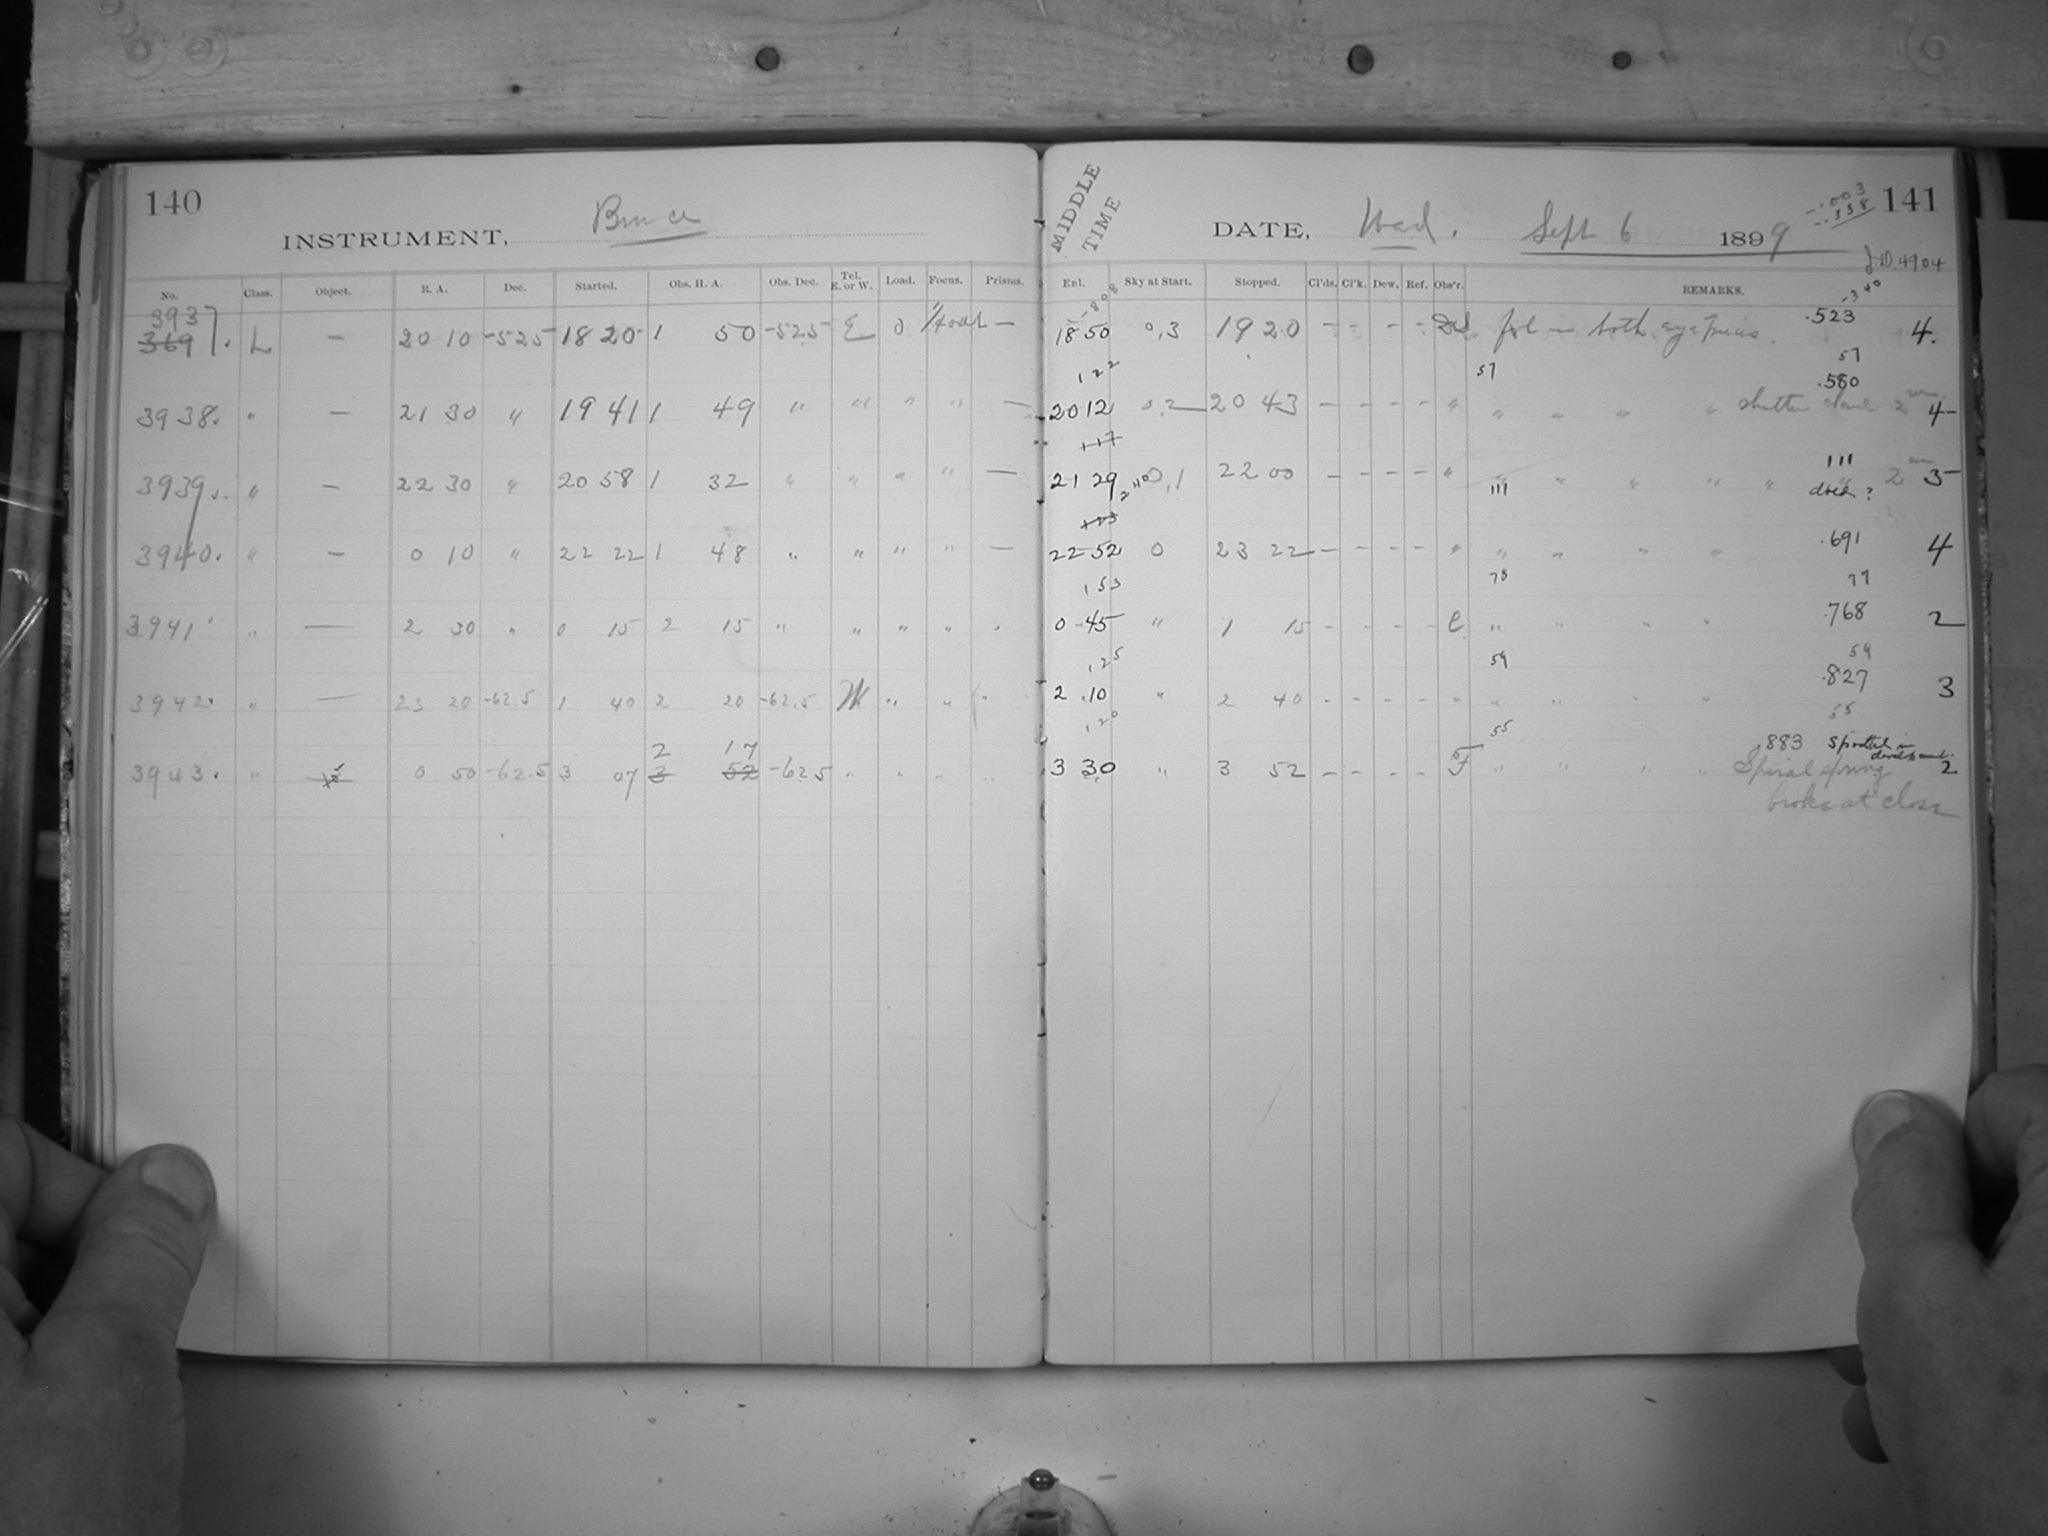 140
INSTRUMENT, Bruce
No. Class. Object. R. A. Dec. Started. Obs. H. A. Obs. Dec. Tel. E. or W. Load. Focus. Prisms.
3937. L — 20 10 -52.5 18 20 1 50 -52.5 E 0 —
3938. " — 21 30 " 19 41 1 49 " " " " —
3939. " — 22 30 " 20 58 1 32 " " " " —
3940. " — 0 10 " 22 22 1 48 " " " " —
3941 " — 2 30 " 0 15 2 15 " " " " "
3942. " — 23 20 -62.5 1 40 2 20 -62.5 W " " "
2 17
3943. " 0 50 -62.5 3 07 3 52 -62.5 " " " "
MIDDLE TIME
DATE, Wed. Sept 6 1899
-.003
-.338
141
J.D. 4904
Enl. Sky at Start. Stopped. Cl'ds. Cl'k. Dew. Ref. Obs'r. REMARKS.
-340
18 50 0,3 19 20 - - - - fol in both eyepieces. .523 4.
122 57 57
.580
20 12 0,2 20 43 - - - - " " " " " shutter closed 2m 4
117
21 29 0,1 22 00 - - - - " " " " " " " 111 2m 3
240 111 died ?
123
22 52 0 23 22 - - - - " " " " " .691 4
153 78 77
0 45 " 1 15 - - - - C " " " " .768 2
125 59 59
2 10 " 2 40 - - - - " " " " " .827 3
120 55 55
.883 spotted in development.
3 30 " 3 52 - - - - F " " " " Spiral spring 2
broke at close